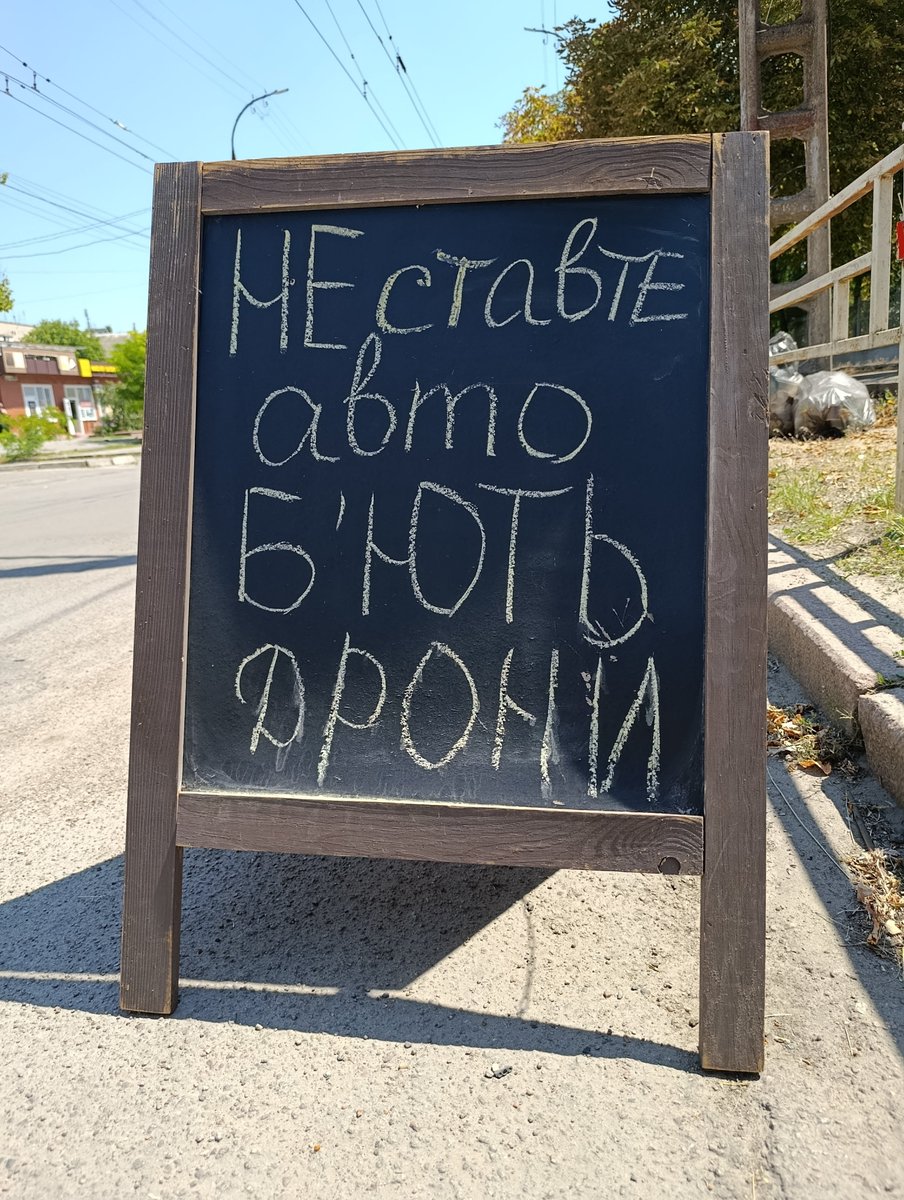 НЕ ставте
авто
Б'ЮТЬ
ДРОНИ